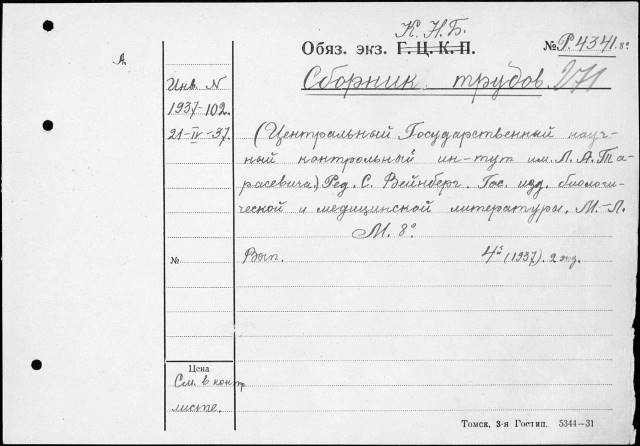 К. Н. Б.
Обяз. экз. Г. Ц. К. П. № Р. 4341. 8º
А
Сборник трудов. 271
Инв. N
1937-102.
21-IV-37.
(Центральный Государственный науч-
ный контрольный ин-тут им. Л. А. Та-
расевича.) Ред. С. Вейнберг. Гос. изд. биологи-
ческой и медицинской литературы. М.-Л.
М. 8º
№ Вып. 4 (1937). 2 экз.
Цена
См. в контр.
листе.
Томск, 3-я Гостип. 5344—31